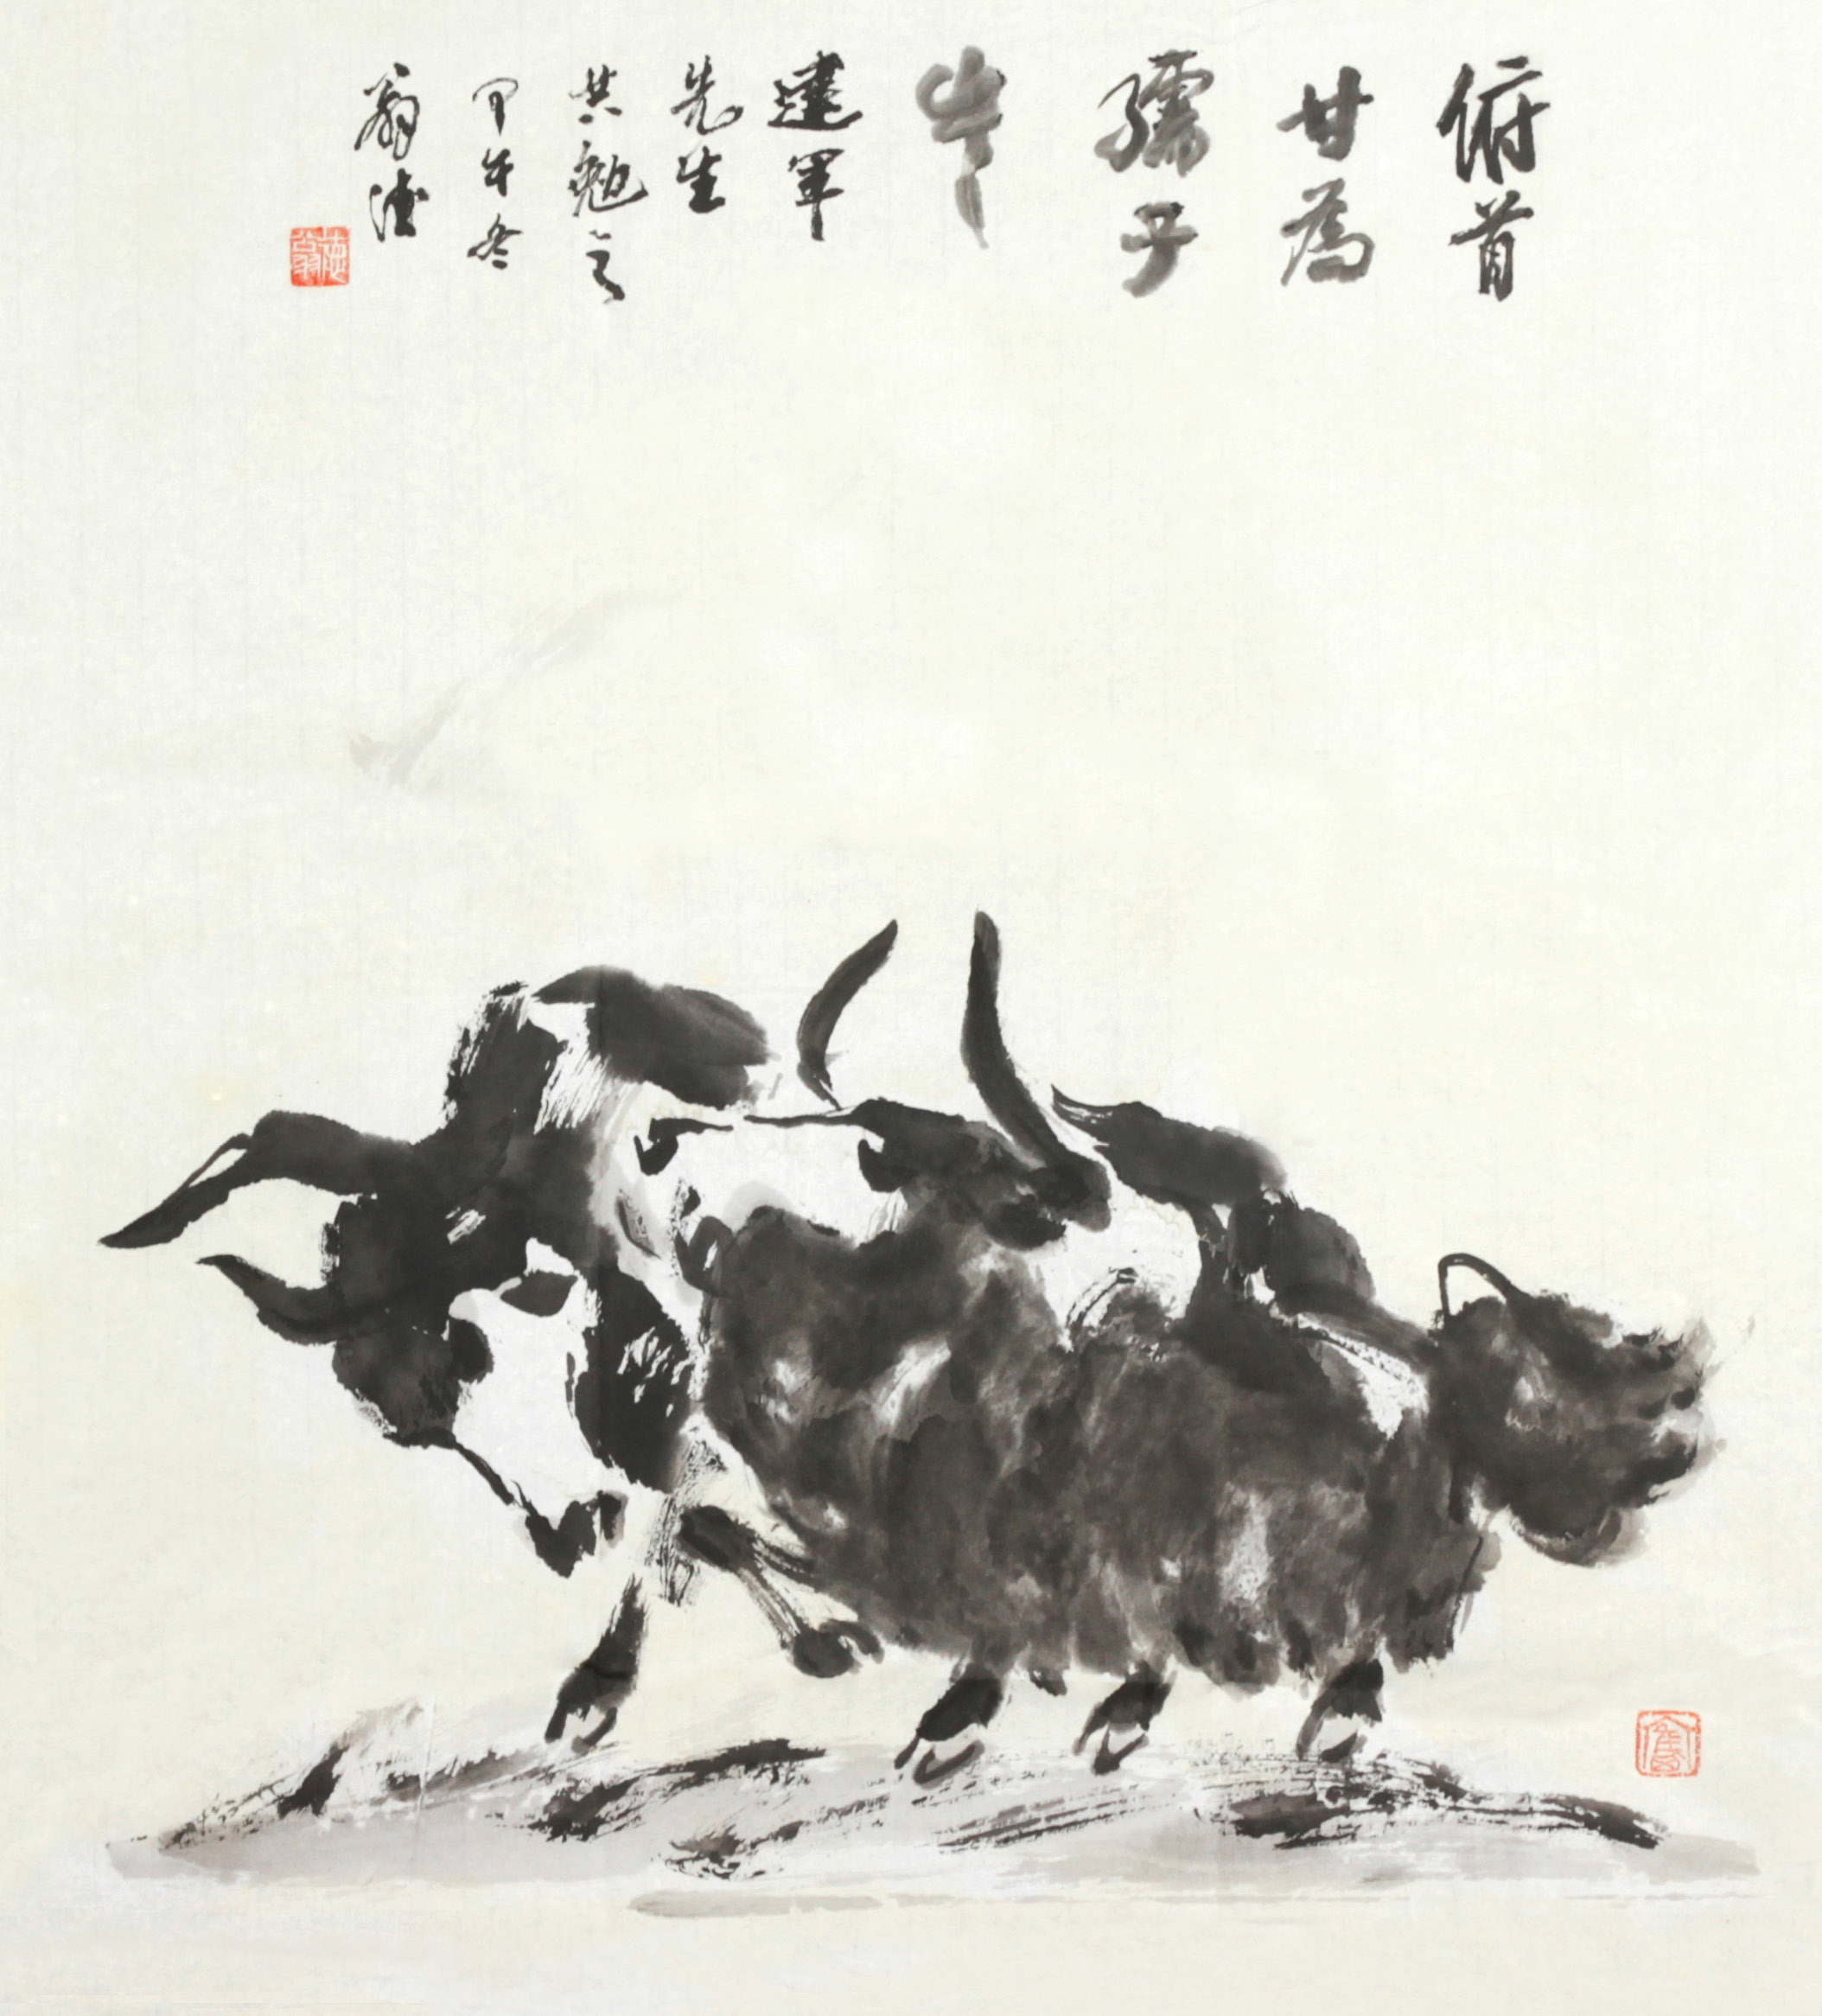 俯首
甘為
孺子
牛
建軍
先生
共勉之
甲午冬
翁德